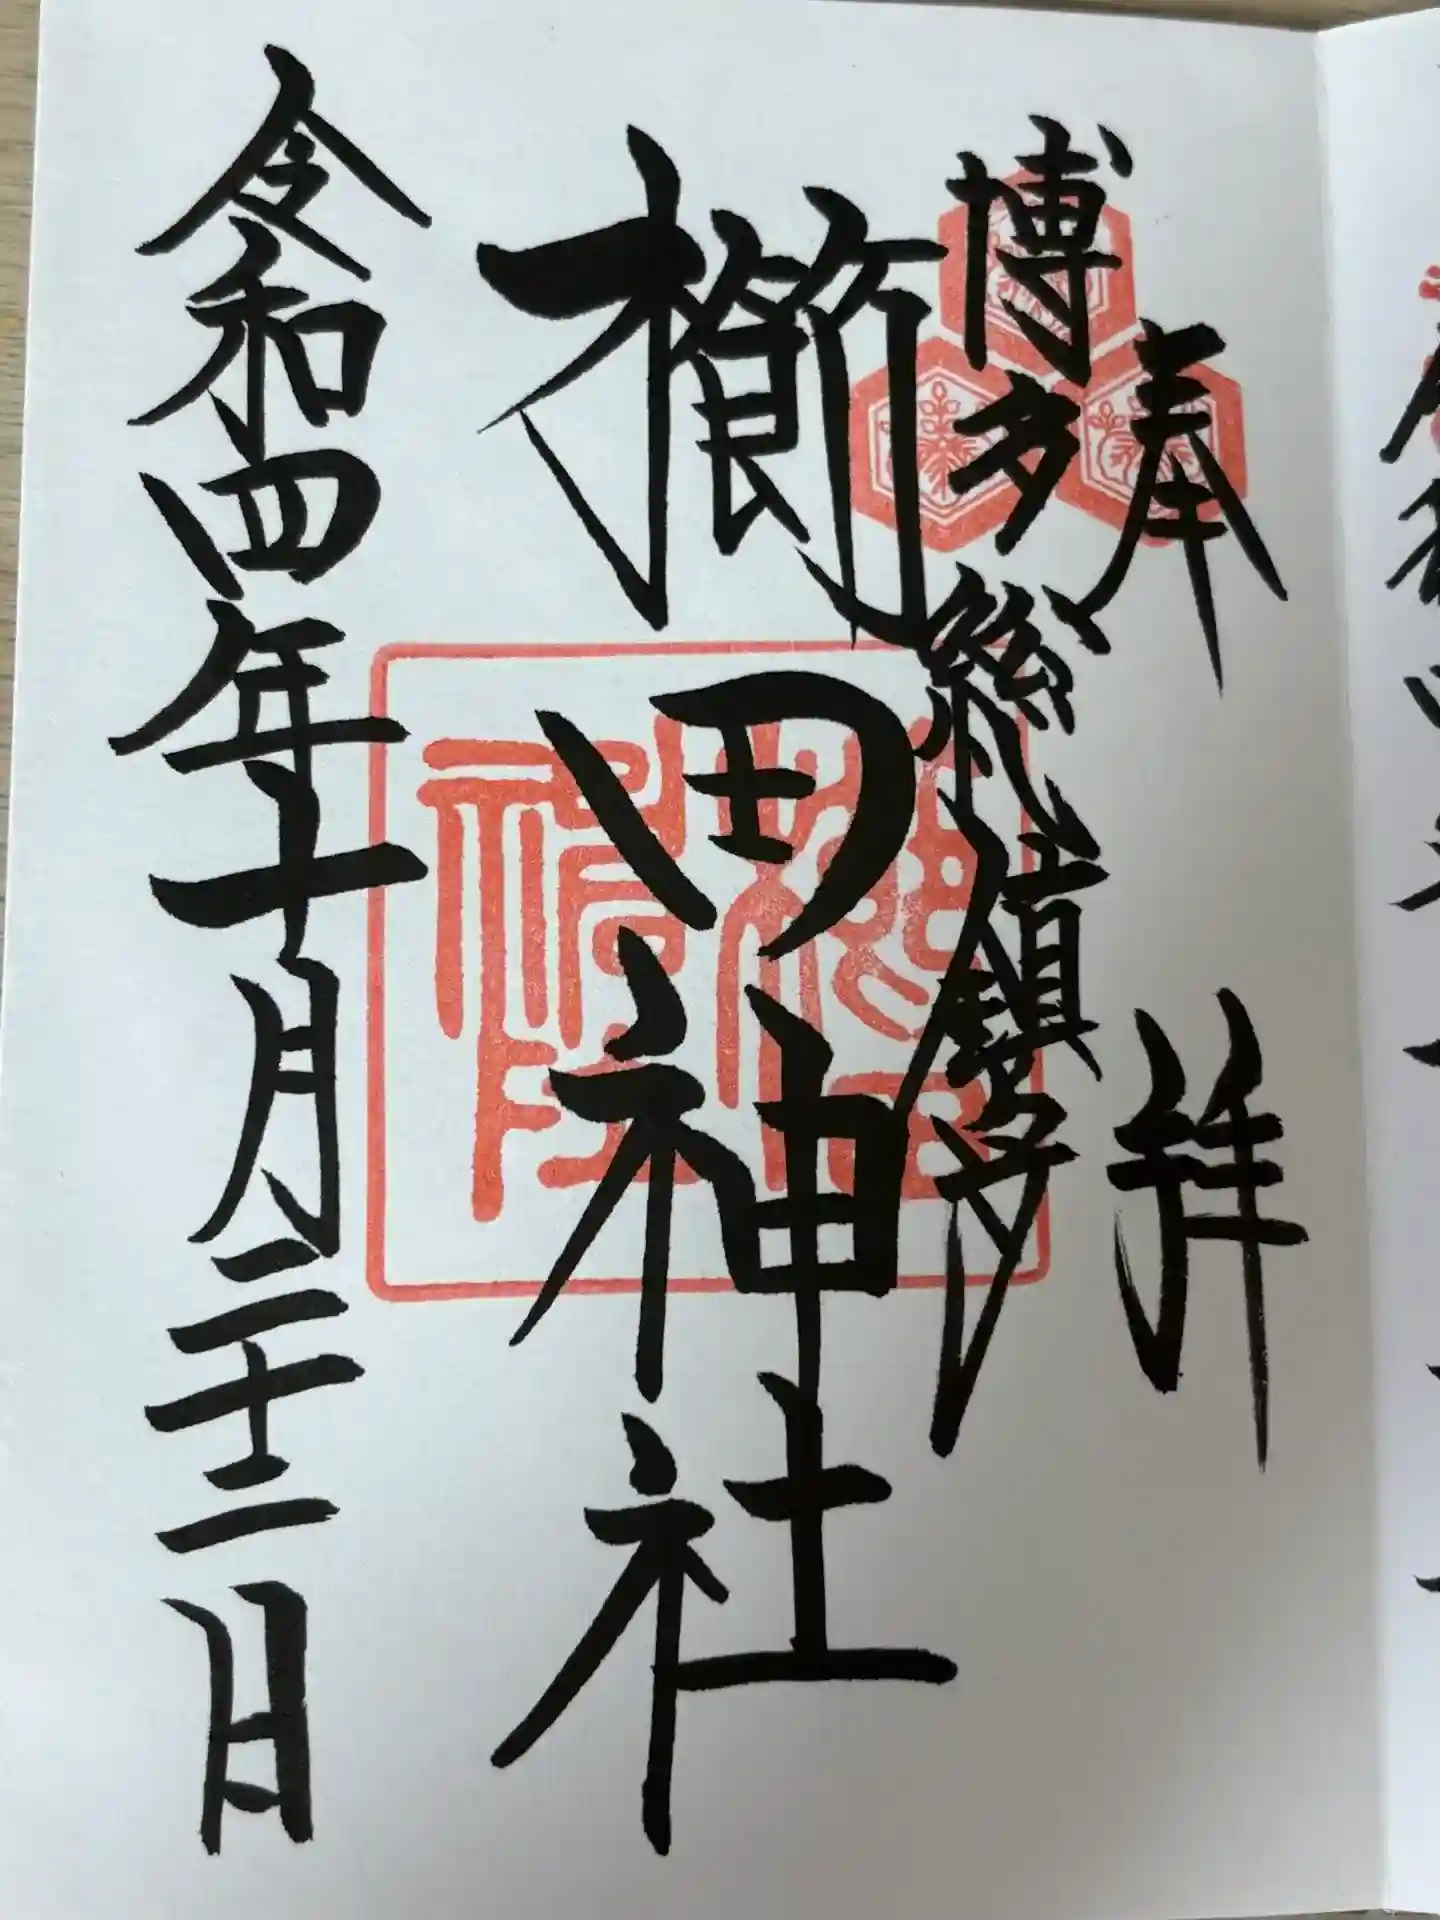 奉拝
博多総鎮守
櫛田神社
令和四年十月二十二日